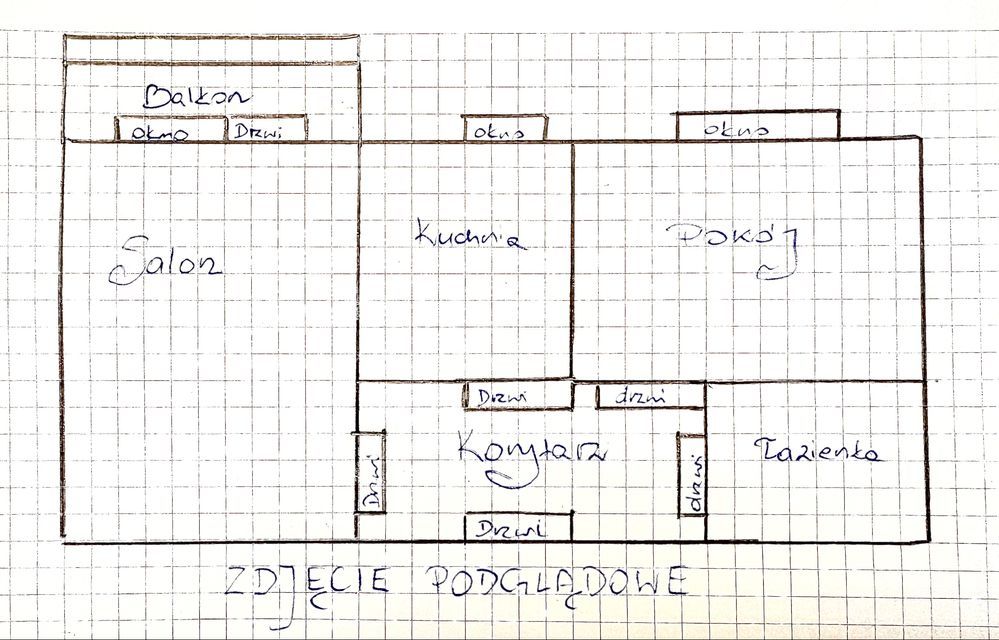 Balkon
okno Drzwi okno okno
Salon Kuchnia Pokój
Drzwi drzwi
Korytarz Łazienka
Drzwi drzwi
Drzwi
ZDJĘCIE PODGLĄDOWE